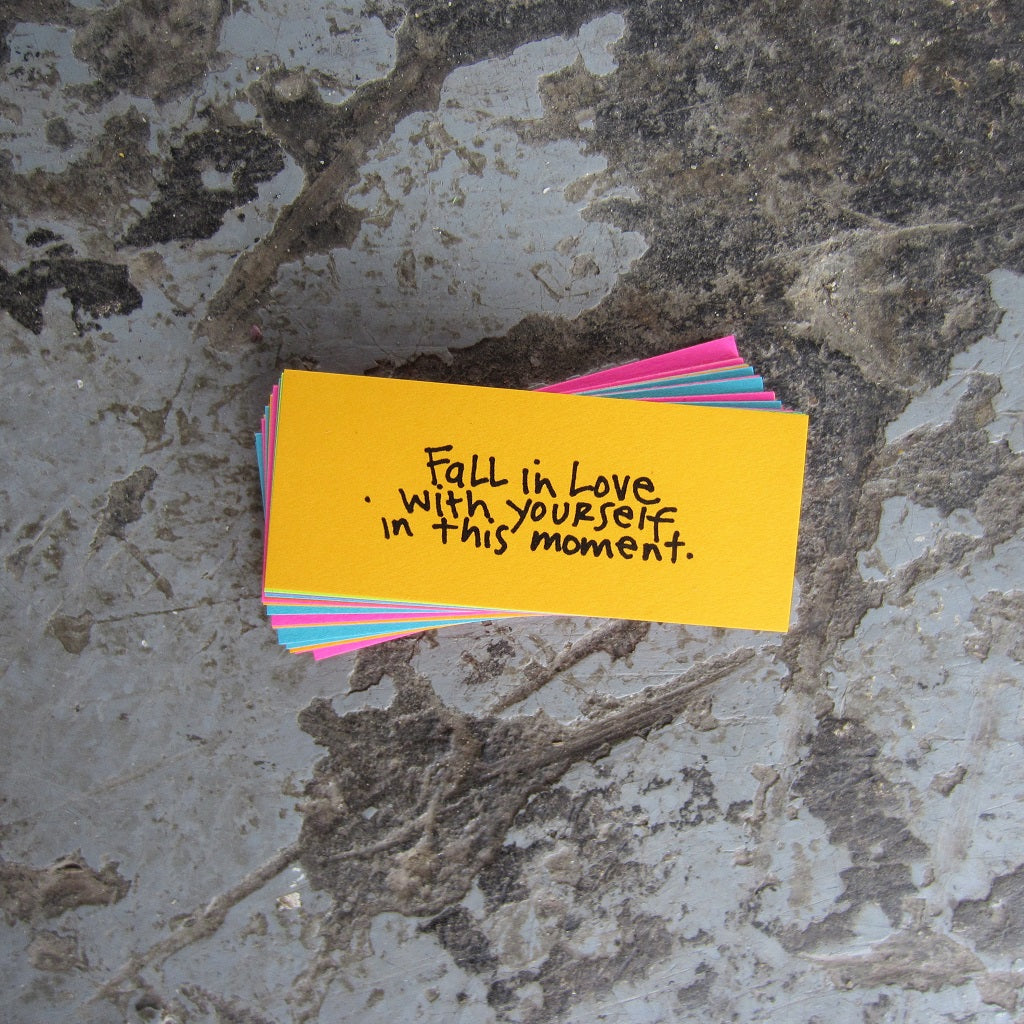 Fall in Love
with yourself
in this moment.